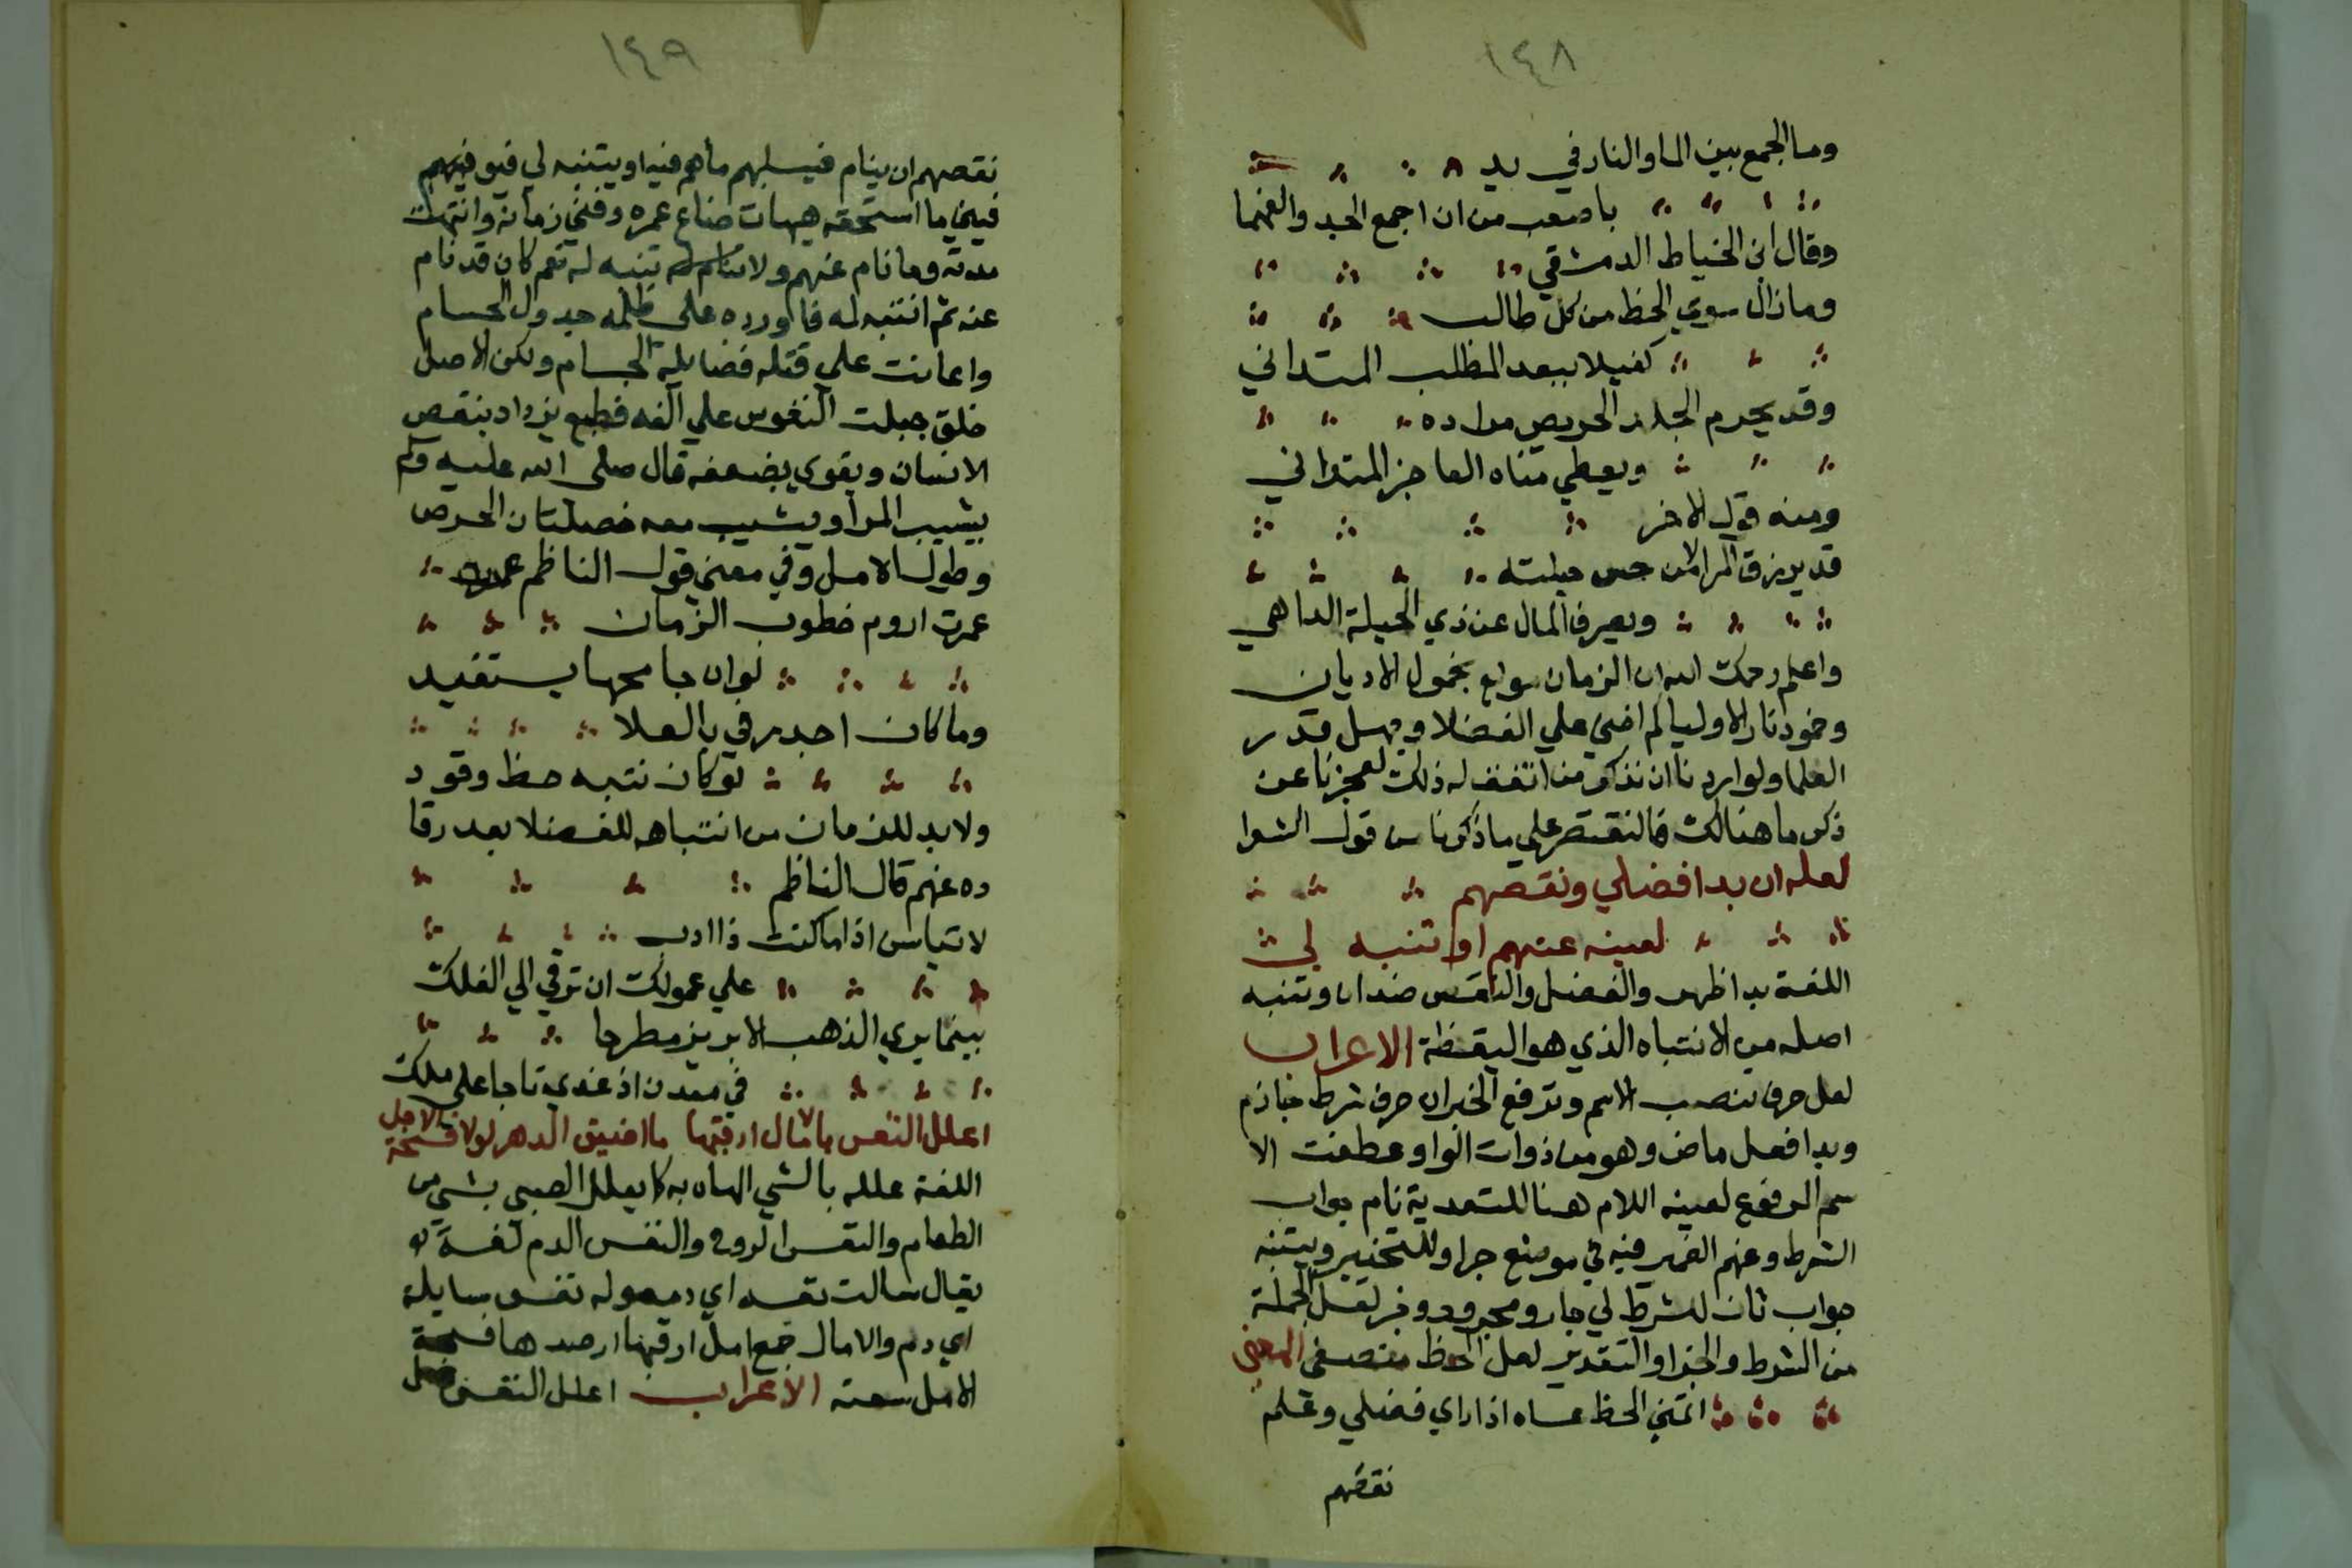 ١٤٨
وما الجمع بين الما والنار في يد
باصعب من ان اجمع الجد والفهما
وقال ابن الخياط الدمشقي
وما زال سوي الحظ من كل طالب
كفيلا ببعد المطلب المتداني
وقد يحرم الجلد الحريص مراده
ويعطي مناه العاجز المتواني
ومنه قول الاخر
قد يرزق المرا لا من حسن حيلته
ويصرف المال عن ذي الحيلة الداهي
واعلم رحمك الله ان الزمان مولع بخمول الاديان
وخمود نار الاوليا لم اخني علي الفضلا وجهل قدر
العلما ولو اردنا ان نذكر من اتفف له ذلك لعجزنا عن
ذكر ما هنالك فالنقتصر علي ما ذكرنا من قول الشعرا
لعله ان بدا فضلي ونقصهم
لعينه عنهم او تنبه لي
اللغة بدا ظهر والفضل والنقص ضدان وتنبه
اصله من الانتباه الذي هو اليقظة الاعراب
لعل حرف تنصب الاسم وترفع الخبر ان حرف شرط جازم
وبدا فعل ماض وهو من ذوات الواو عطفت الا
سم المرفوع لعينه اللام هنا للتعدية نام جواب
الشرط وعنهم الضمير فيه في موضع جر او للتخيير ويتنبه
جواب ثان للشرط لي جار ومجرور وخبر لعل الجملة
من الشرط والجزا والتقدير لعل الحظ منصفي المعني
اتمني الحظ عساه اذا راي فضلي وعلم
نقصهم
١٤٩
نقصهم ان ينام فيسلبهم ما هم فيه او يتنبه لي فيوفيهم
فيني ما استحقه هيهات ضاع عمره وفني زمانه وانتهت
مدته وما نام عنهم ولا تنبه له نعم كان قد نام
عنه ثم انتبه له فاورده علي ظلمه جدول الحسام
واعانت علي قتله فضايله الجسام ولكن الامل
خلق جبلت النفوس علي الفه فطبع يزداد بنقص
الانسان ويقوي بضعفه قال صلي الله عليه وسلم
يشيب المرا ويشيب معه خصلتان الحرص
وطول الامل وفي معني قول الناظم
عمرت اروم خطوب الزمان
لو ان جامحها يستقيد
وما كان اجدرني بالعلا
لو كان نتبه حظ رقود
ولا بد للزمان من انتباهه للفضلا بعد رقا
ده عنهم قال الناظم
لا تياسن اذا ما كنت ذا ادب
علي خمولك ان ترقي الي الفلك
بينما يري الذهب الابريز مطرحا
في معدن اذ غدي تاجا علي ملك
اعلل النفس بالامال ارقبها ما اضيق الدهر لولا فسحة الاجل
اللغة علله بالشي الهاه به كما يعلل الصبي بشي من
الطعام والنفس الروح والنفس الدم لغة
يقال سالت نفسه اي دمه وله نفس سايلة
اي دم والامال جمع امل ارقبها ارصدها فسحة
الامل سعته الاعراب اعلل النفس فعل